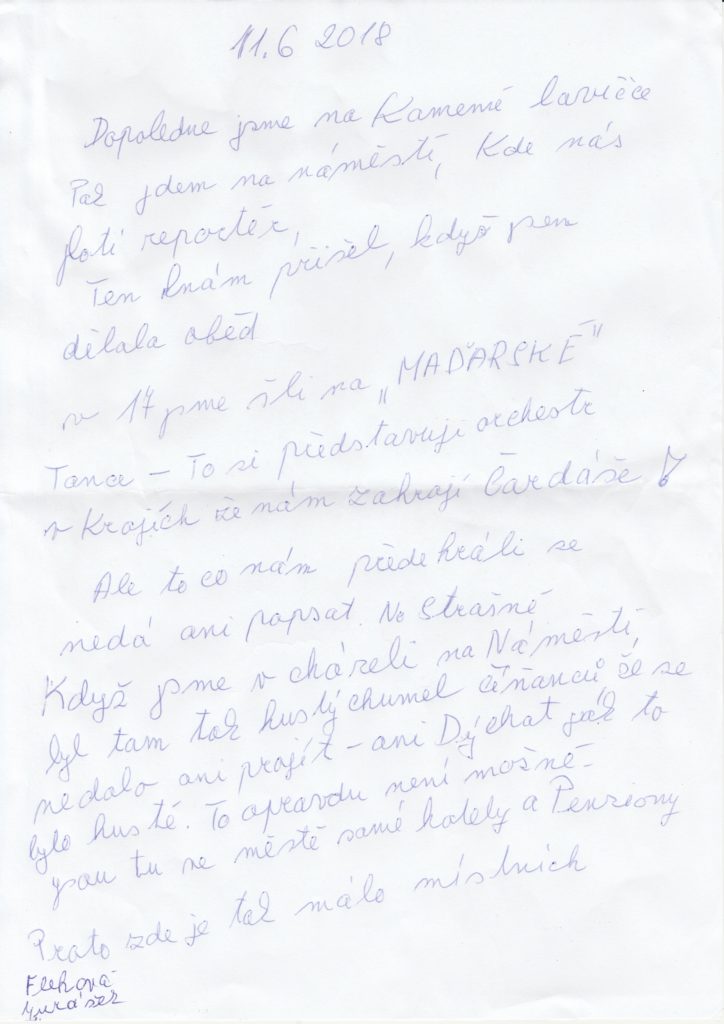 11.6 2018
Dopoledne jsme na Kamemé lavičce
Pak jdem na náměstí, Kde nás
fotí reportér,
Ten knám přišel, když jsem
dělala oběd
v 17 jsme šli na „MAĎARSKÉ"
Tance – To si představuji orchestr
v Krojích že nám zahrají Čardáše!
Ale to co nám předehráli se
nedá ani popsat. No Strašné
Když jsme v cházeli na Náměstí,
byl tam tak hustýchumel číňanců že se
nedalo ani projít – ani Dýchat jak to
bylo husté. To opravdu není možné-
jsou tu ve městě samé hotely a Penziony
Proto zde je tak málo místních